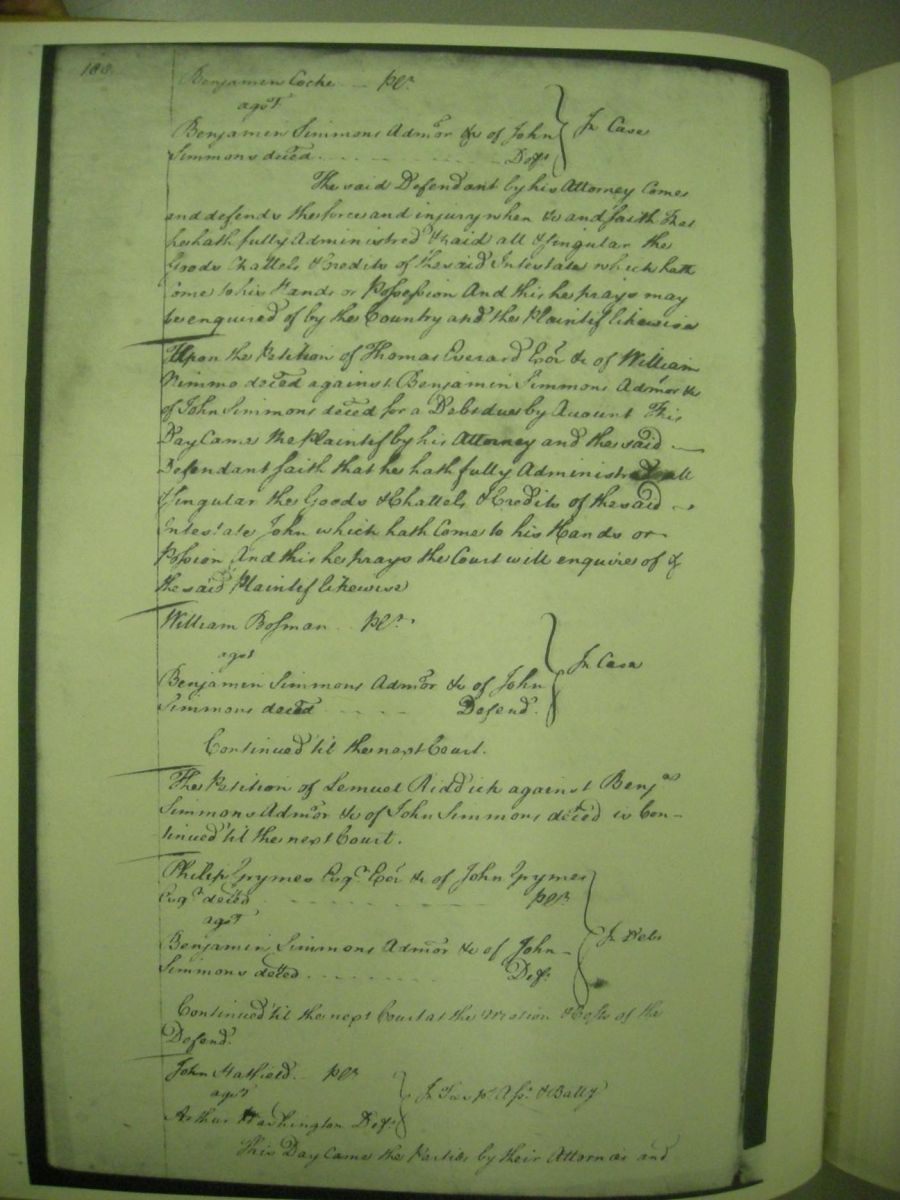 188.
Benjamin Cocke - - Plt.
agst
Benjamin Simmons Admor &c of John } In Case
Simmons deced. - - - - - - - Deft
The said Defendant by his Attorney Comes
and defends the force and injury when &c and saith that
he hath fully Administred & paid all & Singular the
Goods Chattels & Credits of the said Intestate which hath
Come to his Hands or Possession And this he prays may
be enquired of by the Country and the Plaintif likewise
Upon the Petition of Thomas Everard Exor &c of William
Nimmo deced against Benjamin Simmons Admor &c
of John Simmons deced for a Debt due by Account This
Day Came the Plaintif by his Attorney and the said
Defendant saith that he hath fully Administred all
& Singular the Goods & Chattels & Credits of the said
Intestate John which hath Come to his Hands or
Possion And this he prays the Court will enquire of &
the said Plaintif likewise
William Bosman - - Plt.
agst
Benjamin Simmons Admor &c of John } In Case
Simmons deced - - - - Defend.
Continued 'til the next Court.
The Petition of Lemuel Riddick against Benja
Simmons Admor &c of John Simmons deced is Con-
tinued 'til the next Court.
Philip Grymes Esqr. Exor &c of John Grymes
Esqr deced - - - - - - - Plt.
agst
Benjamin Simmons Admor &c of John - } In Debt
Simmons deced - - - - - - Deft.
Continued 'til the next Court at the Motion & Costs of the
Defend.
John Hatfield - Plt
agst } In Tres pr Asst & Batty
Arthur Washington Deft
This Day Came the Parties by their Attornies and